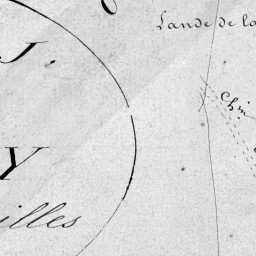 Lande de la
J.
Chin
Y
illes